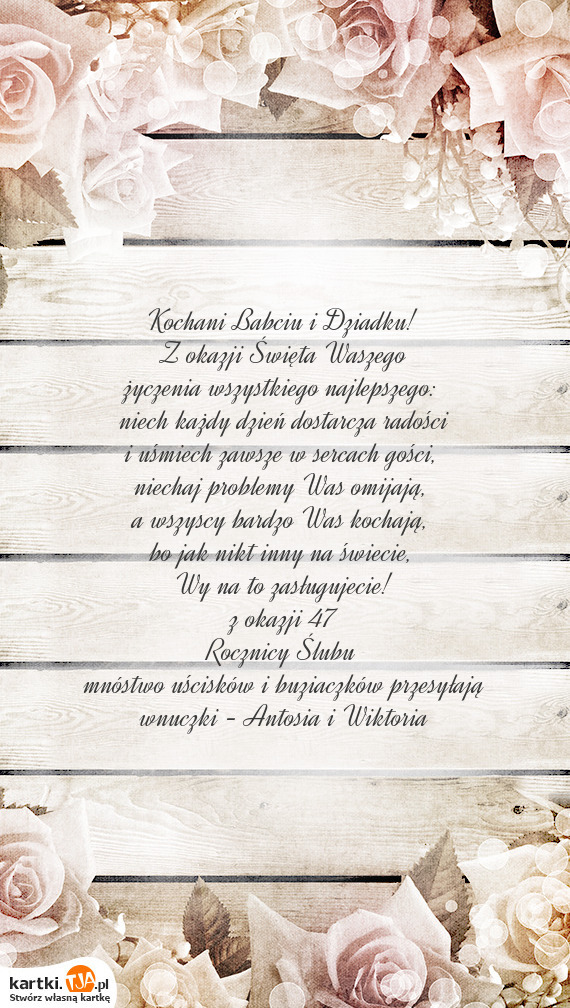 Kochani Babciu i Dziadku!
Z okazji Święta Waszego
życzenia wszystkiego najlepszego:
niech każdy dzień dostarcza radości
i uśmiech zawsze w sercach gości,
niechaj problemy Was omijają,
a wszyscy bardzo Was kochają,
bo jak nikt inny na świecie,
Wy na to zasługujecie!
z okazji 47
Rocznicy Ślubu
mnóstwo uścisków i buziaczków przesyłają
wnuczki - Antosia i Wiktoria
kartki.TJA.pl
Stwórz własną kartkę